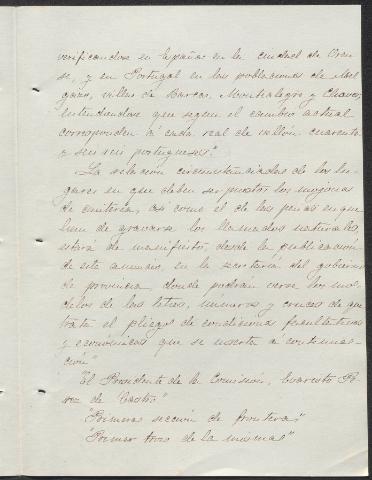 verificandose en España en la ciudad de Oren
se, y en Portugal en las poblaciones de Mel
gazo, villas de Barcas, Montealegre y Chaves,
entendiendose que segun el cambio actual
corresponden á cada real de vellón cuarenta
y seis reis portugueses."
"La relación circunstanciada de los lu
gares en que deben ser puestos los mojones
de cantería, así como el de las peñas en que
han de gravarse los llamados naturales,
estará de manifiesto, desde la publicación
de este anuncio, en la secretaría del gobierno
de provincia, donde podrán verse los mo
delos de las letras, numeros y cruces de que
trata el pliego de condiciones facultativas
y económicas que se inserta á continua-
ción"
"El Presidente de la Comisión, Pe
rez de Castro"
"Primera sección de frontera"
"Primer trozo de la misma"